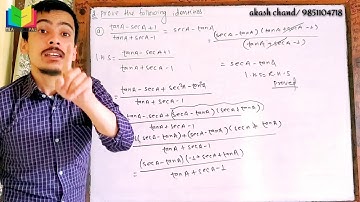 akash chand/ 9851104718
prove the following identities
a) (tanA - secA + 1)/(tanA + secA - 1) = secA - tanA
L.H.S = (tanA - secA + 1)/(tanA + secA - 1)
= (tanA - secA + sec²A - tan²A)/(tanA + secA - 1)
tanA - secA + (secA - tanA)(secA + tanA)
tanA + secA - 1
(secA - tanA)(secA + tanA)
tanA + secA - 1
= (secA - tanA)(-1 + secA + tanA)/(tanA + secA - 1)
= (secA - tanA)(tanA + secA - 1)/(tanA + secA - 1)
= secA - tanA
L.H.S = R.H.S
proved